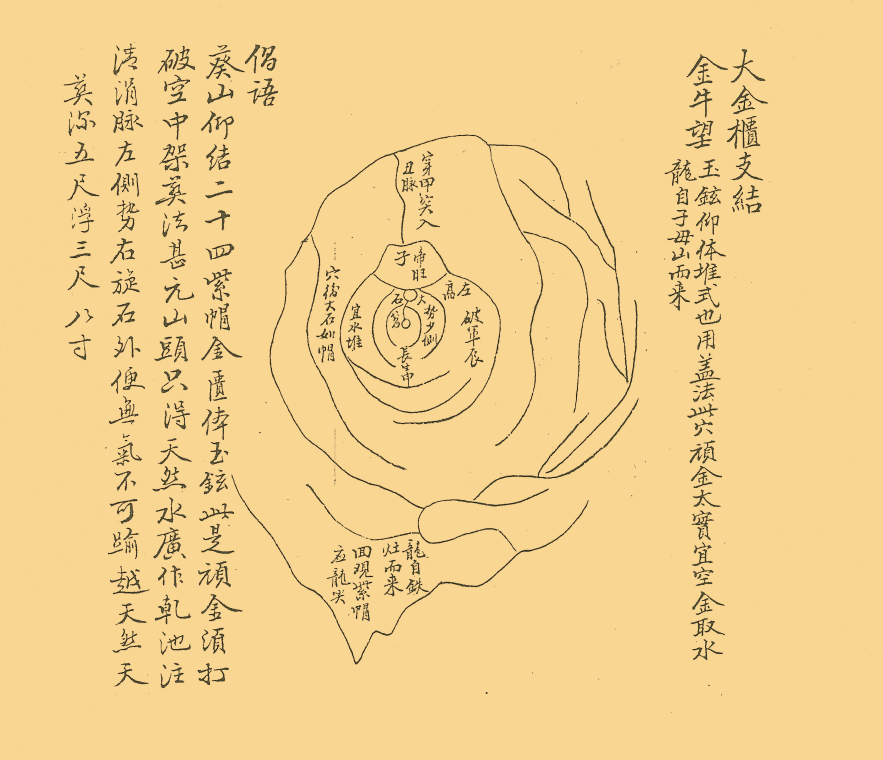 大金櫃支結
金牛望
玉鉉仰体堆式也用盖法此穴頑金太實宜空金取水
龍自子母山而来
穿甲突入
丑脉
帝旺
子
左高
破軍辰
大勢少側
石
長
宜水堆
穴后大石如帽
龍自鉄
灶而来
回观紫帽
应龍尖
偈語
葵山仰結二十四紫帽金匱俸玉鉉此是頑金須打
破空中架葬法甚元山頭只得天然水廣作乾池注
清涓脉左側势右旋石外便無氣不可踰越天然天
葬深五尺浮三尺八寸